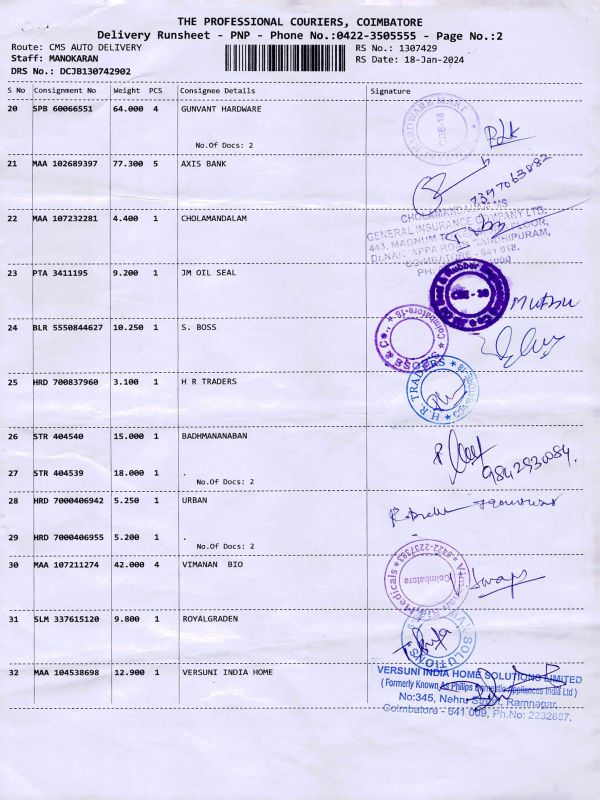 THE PROFESSIONAL COURIERS, COIMBATORE
Delivery Runsheet - PNP - Phone No.:0422-3505555 - Page No.:2
Route: CMS AUTO DELIVERY RS No.: 1307429
Staff: MANOKARAN RS Date: 18-Jan-2024
DRS No.: DCJB130742902
S No Consignment No Weight PCS Consignee Details Signature
20 SPB 60066551 64.000 4 GUNVANT HARDWARE
HARDWARE MART
CBE-18
No.Of Docs: 2
21 MAA 102689397 77.300 5 AXIS BANK
7397063882
22 MAA 107232281 4.400 1 CHOLAMANDALAM
CHOLAMANDALAM MS
GENERAL INSURANCE COMPANY LTD.
443, MAGNUM FLOOR,
Dr.NANJAPPA ROAD, GANDHIPURAM,
COIMBATORE - 641 018.
23 PTA 3411195 9.200 1 JM OIL SEAL
CBE - 18
24 BLR 5550844627 10.250 1 S. BOSS
BOSS & Co., Coimbatore-18
25 HRD 700837960 3.100 1 H R TRADERS
H.R. TRADERS
26 STR 404540 15.000 1 BADHMANANABAN
27 STR 404539 18.000 1 .
9842930084.
No.Of Docs: 2
28 HRD 7000406942 5.250 1 URBAN
29 HRD 7000406955 5.200 1 .
No.Of Docs: 2
30 MAA 107211274 42.000 4 VIMANAN BIO
Medicals 0422-2237383
Coimbatore
31 SLM 337615120 9.800 1 ROYALGRDEN
SOLUTIONS
32 MAA 104538698 12.900 1 VERSUNI INDIA HOME
VERSUNI INDIA HOME SOLUTIONS LIMITED
( Formerly Known As Philips Domestic Appliances India Ltd )
No:345, Nehru Street, Ramnagar,
Coimbatore - 641 009, Ph.No: 2232687.